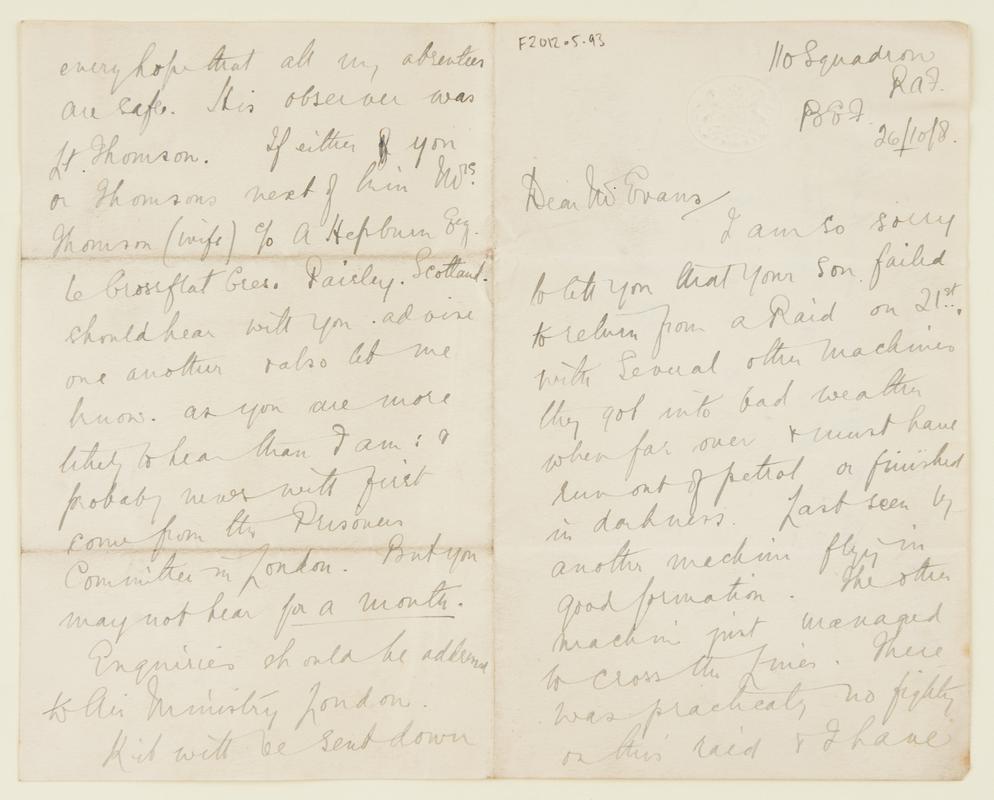 F2012.5.93
110 Squadron
RAF.
BEF.
26/10/8.
Dear Mr Evans
I am so sorry
to tell you that your son failed
to return from a Raid on 21st.
with Several other machines
they got into bad weather
when far over & must have
run out of petrol or finished
in darkness. Last seen by
another machine flying in
good formation. The other
machine just managed
to cross the Lines. There
was practically no fighting
on this raid & I have
every hope that all my absentees
are safe. His observer was
Lt. Thomson. If either of you
or Thomsons next of kin Mrs.
Thomson (wife) c/o A Hepburn Esq.
6 Crossflat Cres. Paisley. Scotland.
should hear will you advise
one another & also let me
know. as you are more
likely to hear than I am: &
probably news will first
come from the Prisoners
Committee in London. But you
may not hear for a month.
Enquiries should be addressed
to Air Ministry London.
Kit will be sent down